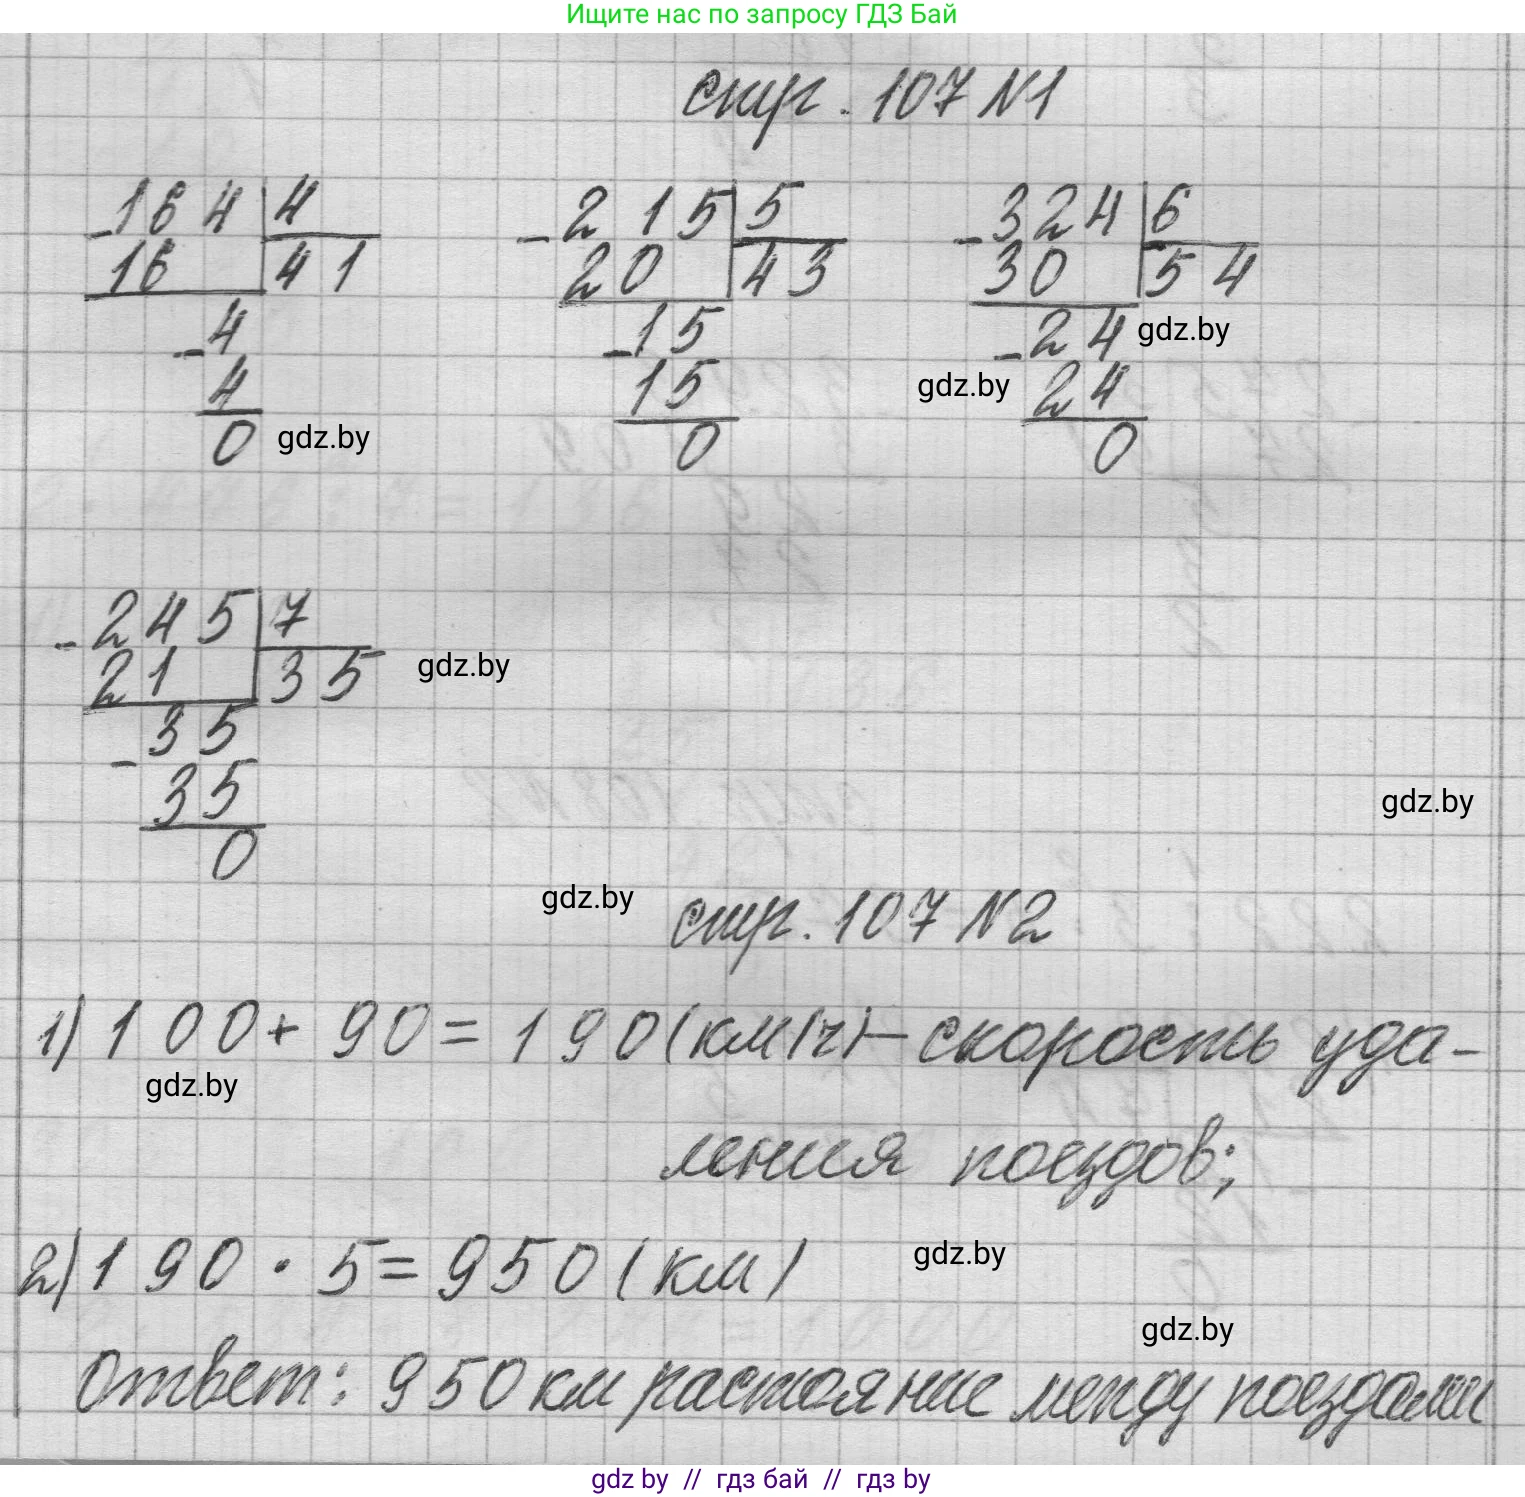 Ищите нас по запросу ГДЗ Бай
стр. 107 N1
-164 | 4
16 | 41
-4
4
0
gdz.by
-215 | 5
20 | 43
-15
15
0
-324 | 6
30 | 54
-24
gdz.by
24
gdz.by
0
-245 | 7
21 | 35
gdz.by
-35
35
0
gdz.by
gdz.by
стр. 107 N2
1) 100 + 90 = 190 (км/ч) – скорость уда-
gdz.by
ления поездов;
2) 190 · 5 = 950 (км)
gdz.by
gdz.by
Ответ: 950 км растояние между поездами
gdz by // гдз бай // гдз by